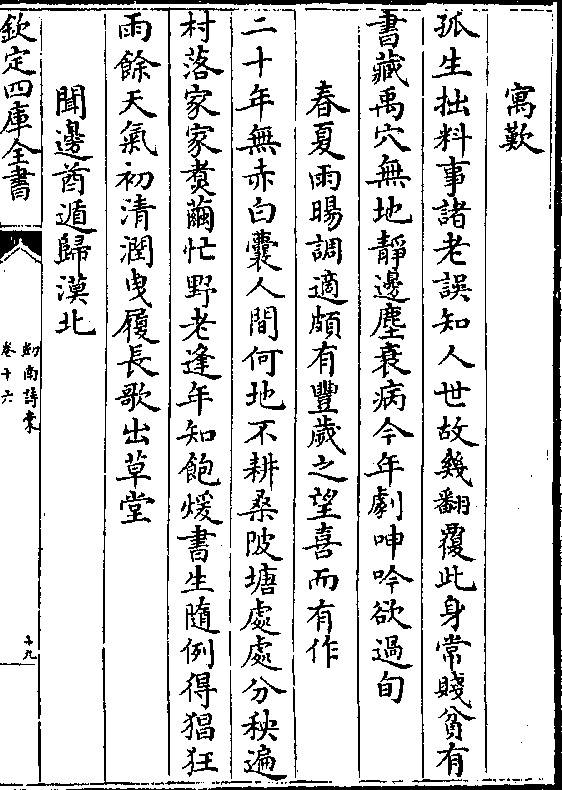 寓歎
孤生拙料事諸老誤知人世故幾翻覆此身常賤貧有
書藏禹穴無地靜邊塵衰病今年劇呻吟欲過旬
春夏雨暘調適頗有豐歲之望喜而有作
二十年無赤白囊人間何地不耕桑陂塘處處分秧遍
村落家家煑繭忙野老逢年知飽煖書生隨例得猖狂
雨餘天氣初清潤曳履長歌出草堂
聞邊酋遁歸漠北
欽定四庫全書
劍南詩稾
卷十六
十九